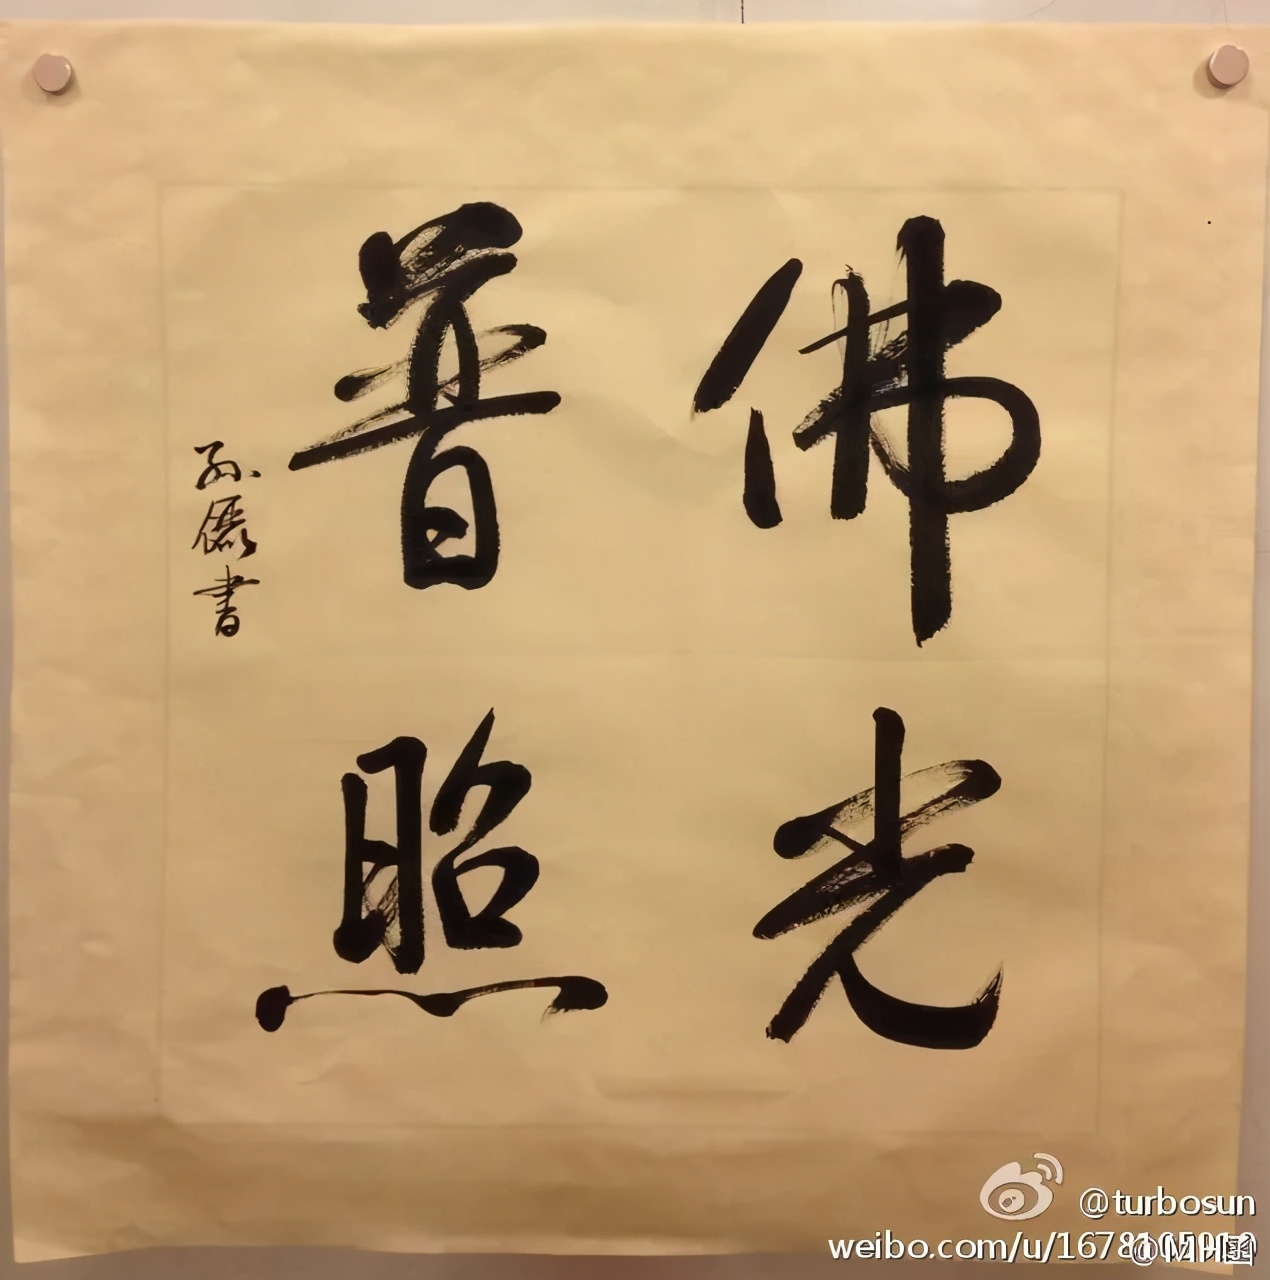 佛光
普照
孙磊書
@turbosun
weibo.com/u/16781